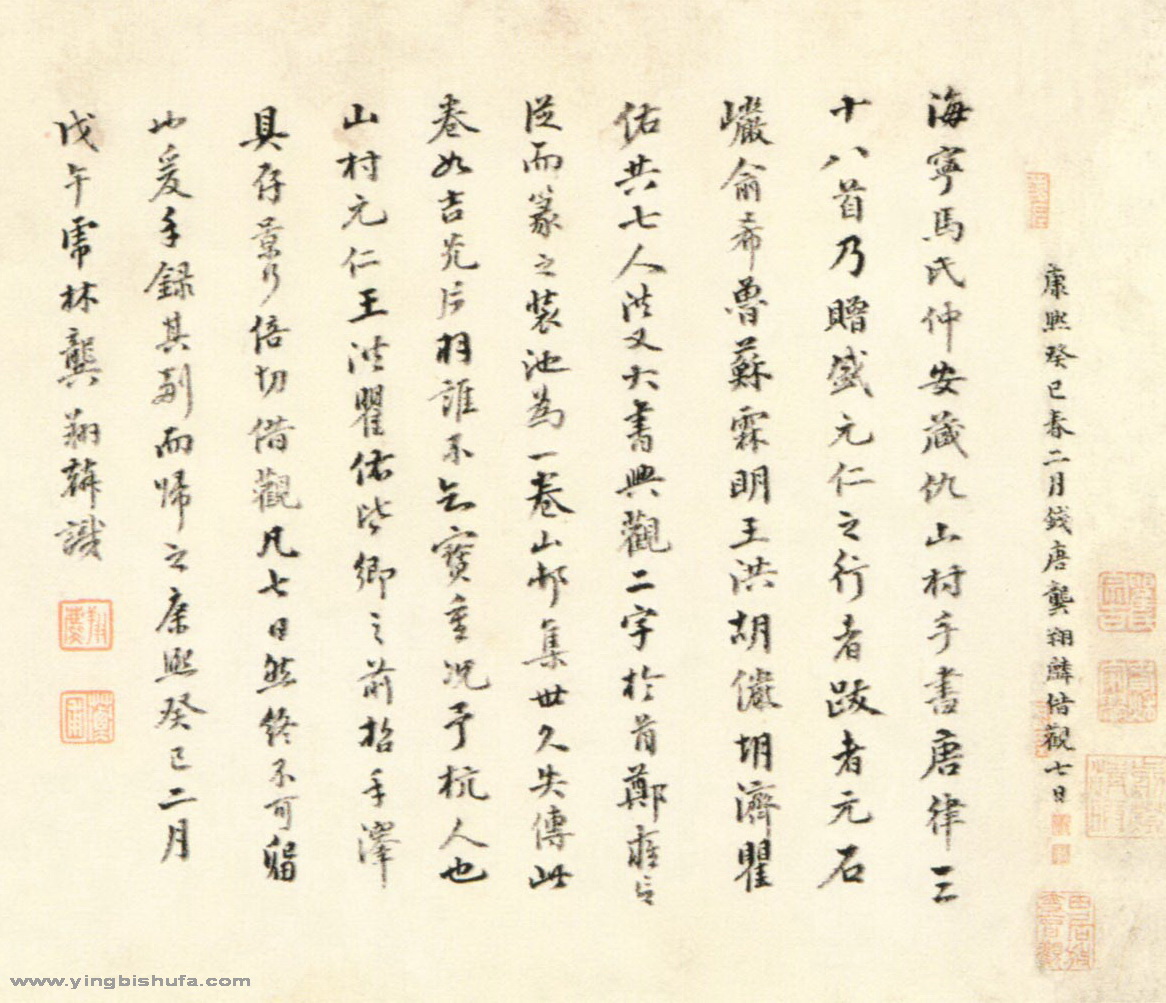 康熙癸巳春二月錢唐龔翔麟借觀七日
海寧馬氏仲安藏仇山村手書唐律三
十八首乃贈盛元仁之行者跋者元石
巖俞希魯蘇霖明王洪胡儼胡濟瞿
佑共七人洪又大書興觀二字於首鄭雍言
從而篆之裝池為一卷山邨集世久失傳此
卷如吉光片羽誰不知寶重況予杭人也
山村元仁王洪瞿佑皆鄉之前招手澤
具存景行倍切借觀凡七日然終不可留
也爰手錄其副而歸之康熙癸巳二月
戊午 林龔翔麟識
www.yingbishufa.com